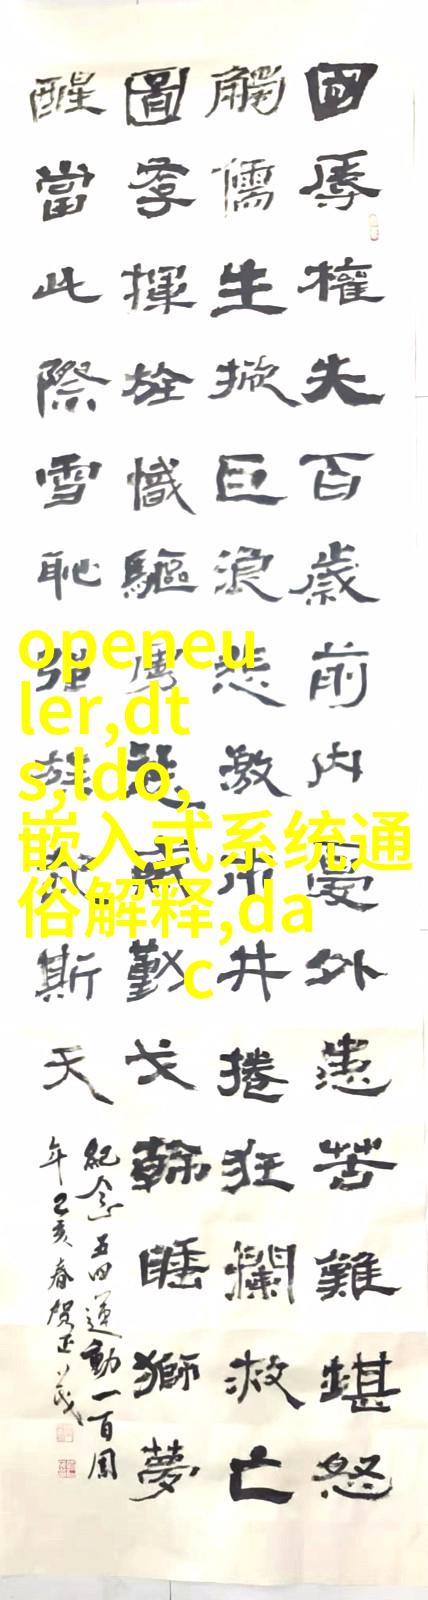 國辱權失百歲前内憂外患苦難堪怒
觸儒生掀巨浪悲激市井捲狂瀾救亡
圖存揮旌幟驅虜戈睡獅夢
醒當此際雪恥强族斯天
紀念五四運動一百周
年己亥春賀正
openeu
ler,dt
s,ldo,
嵌入式系统通
俗解释,da
c